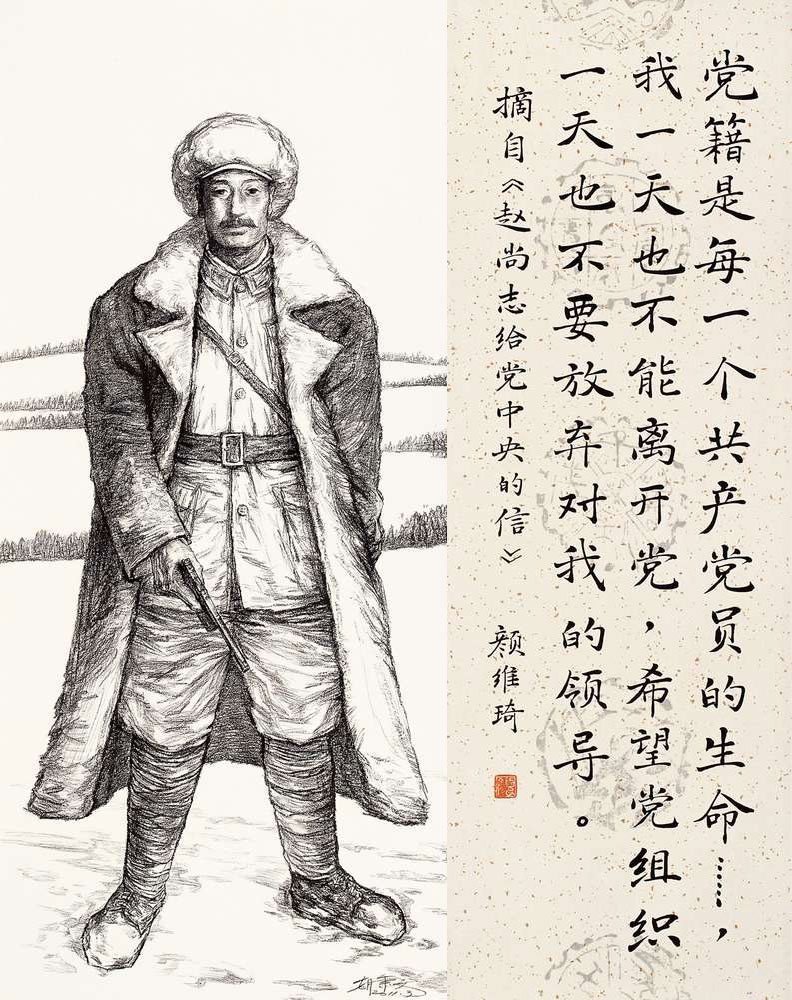 党籍是每一个共产党员的生命……，
我一天也不能离开党，希望党组织
一天也不要放弃对我的领导。
摘自《赵尚志给党中央的信》 颜维琦